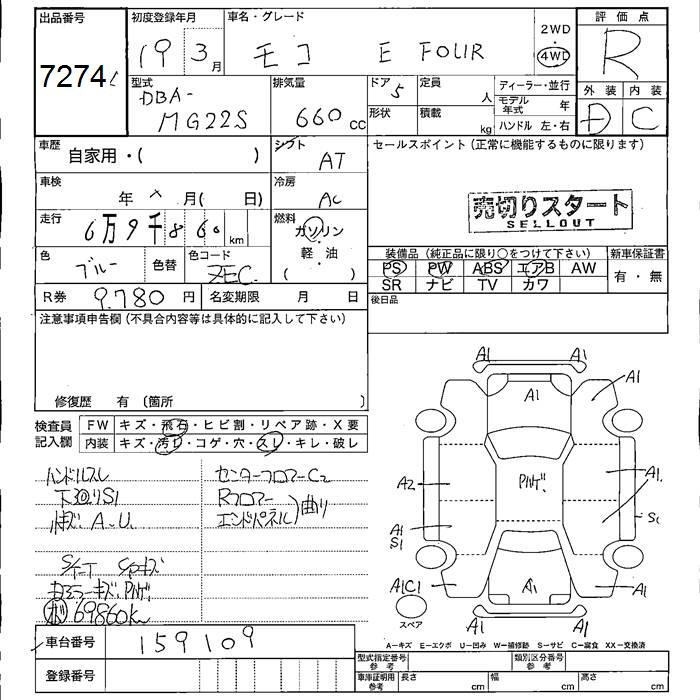 出品番号 初度登録年月 車名・グレード 評価点
7274 19 3月 モコ E FOUR 2WD・4WD R
型式 排気量 ドア 定員 ディーラー・並行 外装 内装
DBA-MG22S 660cc 5 人 モデル年式 年 D C
形状 積載 kg ハンドル 左・右
車歴 シフト セールスポイント(正常に機能するものに限ります)
自家用・( ) AT
車検 冷房
年 × 月( 日) AC
売切りスタート
SELLOUT
走行 燃料
6万9千860km ガソリン・軽油( )
色 色替 色コード
ブルー ZEC
装備品(純正品に限り○をつけて下さい) 新車保証書
PS PW ABS エアB AW 有・無
SR ナビ TV カワ
R券 9.780円 名変期限 月 日
後日品
注意事項申告欄(不具合内容等は具体的に記入して下さい)
修復歴 有〔箇所 〕
検査員記入欄
FW キズ・飛石・ヒビ割・リペア跡・X要
内装 キズ・汚れ・コゲ・穴・スレ・キレ・破レ
ハンドルスレ
下廻りS1
A.U.
センターフロアーC2
Rフロアー
エンドパネル)曲り
キズ
PハゲA
69860km
車台番号 159109
登録番号
A1 A1
A1 A1
A2 Pハゲ. A1.
A1 S1 S1
A1C1 A1 A1
スペア
A1 A1
A=キズ E=エクボ U=凹み W=補修跡 S=サビ C=腐食 XX=交換済
型式指定番号 参考 類別区分番号 参考
車庫証明用 参考 長さ cm 幅 cm 高さ cm